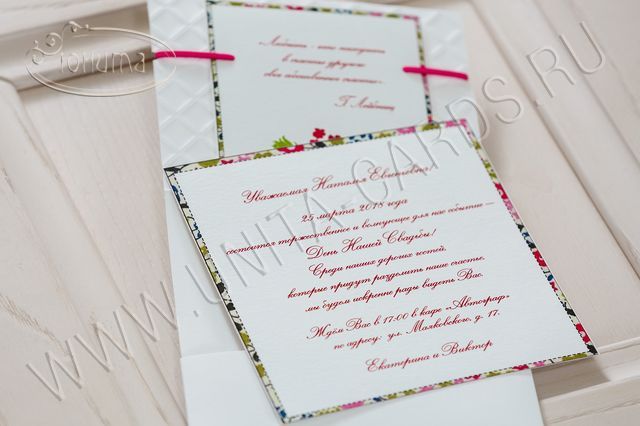 Юнита
«Любить - это находить
в счастье другого
свое собственное счастье».
Г. Лейбниц
Уважаемая Наталья Евгеньевна!
25 марта 2018 года
состоится торжественное и волнующее для нас событие —
День Нашей Свадьбы!
Среди наших дорогих гостей,
которые придут разделить наше счастье,
мы будем искренне рады видеть Вас.
Ждём Вас в 17:00 в кафе «Автограф»
по адресу: ул. Маяковского, д. 17.
Екатерина и Виктор
WWW.UNITA-CARDS.RU